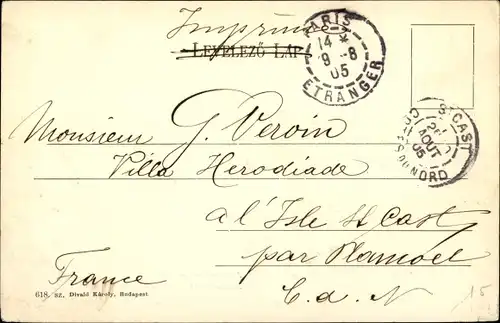 Imprimé
LEVELEZŐ LAP
PARIS
14 *
9 -8
05
ETRANGER
ST CAST
26
AOUT
05
COTES DU NORD
Monsieur G. Veroin
Villa Herodiade
a l'Isle St Cast
par Plancoët
France
C. d. N
618. SZ. Divald Károly, Budapest
15